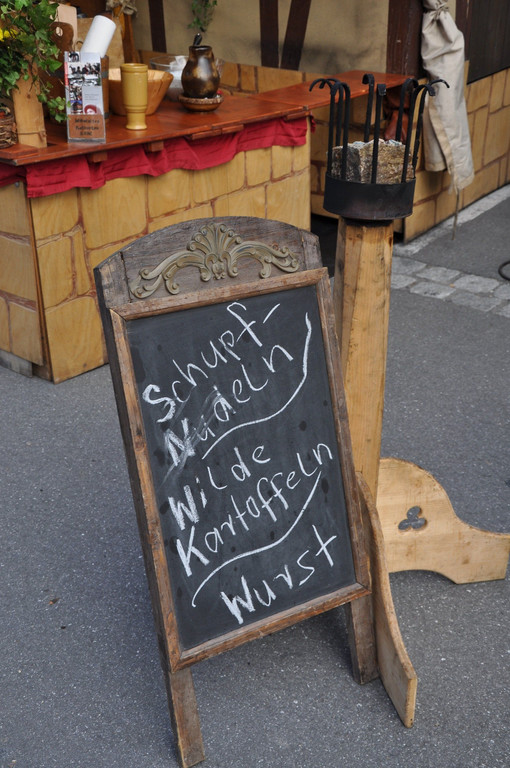 Schupf-
Nudeln
Wilde
Kartoffeln
Wurst